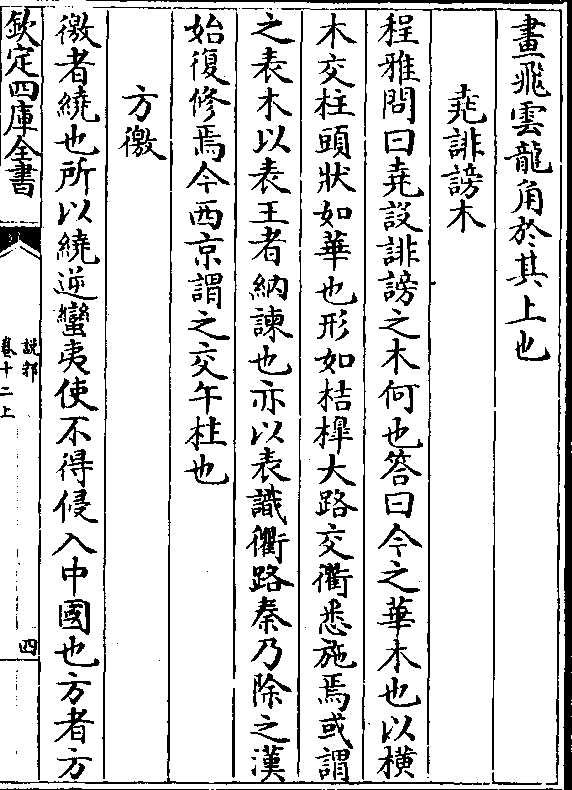 畫飛雲龍角於其上也
堯誹謗木
程雅問曰堯設誹謗之木何也答曰今之華木也以橫
木交柱頭狀如華也形如桔槹大路交衢悉施焉或謂
之表木以表王者納諫也亦以表識衢路秦乃除之漢
始復修焉今西京謂之交午柱也
方徼
徼者繞也所以繞逆蠻夷使不得侵入中國也方者方
欽定四庫全書
說郛
卷十二上
四